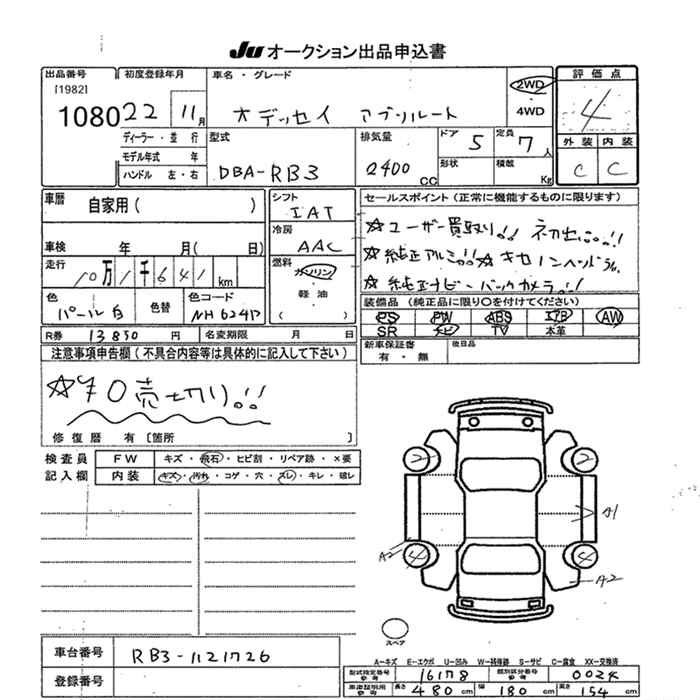 JU オークション出品申込書
出品番号 初度登録年月 車名・グレード 2WD 評価点
[1982]
1080 22 11月 オデッセイ アブソルート ・4WD 4
ディーラー・並行 型式 排気量 ドア 定員 外装 内装
モデル年式 年 5 7人
ハンドル 左・右 DBA-RB3 2400CC 形状 積載 Kg C C
車歴 自家用( ) シフト セールスポイント(正常に機能するものに限ります)
IAT ☆ユーザー買取り!! 初出品!!
車検 年 月( 日) 冷房 AAC ☆純正アルミ!! ☆キセノンヘッドライト
走行 10万1千641km 燃料 ガソリン ☆純正ナビ バックカメラ!!
・軽油・
色 パール白 色替 色コード NH624P ( )
装備品(純正品に限り○を付けてください)
R券 13850円 名変期限 月 日 PS PW ABS エアB AW
SR ナビ TV 本革
注意事項申告欄(不具合内容等は具体的に記入して下さい) 新車保証書 後日品
有・無
☆¥0売切り!!
修復歴 有 [箇所
検査員 FW キズ・飛石・ヒビ割・リペア跡・×要
記入欄 内装 キズ・汚れ・コゲ・穴・スレ・キレ・破レ
2 2
A1
A2 4 4
A2
スペア
A-キズ E-エクボ U-凹み W-補修跡 S-サビ C-腐食 XX-交換済
車台番号 RB3-1121726 型式指定番号 参考 16178 類別区分番号 参考 0024
登録番号 車検証明用 参考 長さ 480cm 幅 180cm 高さ 154cm